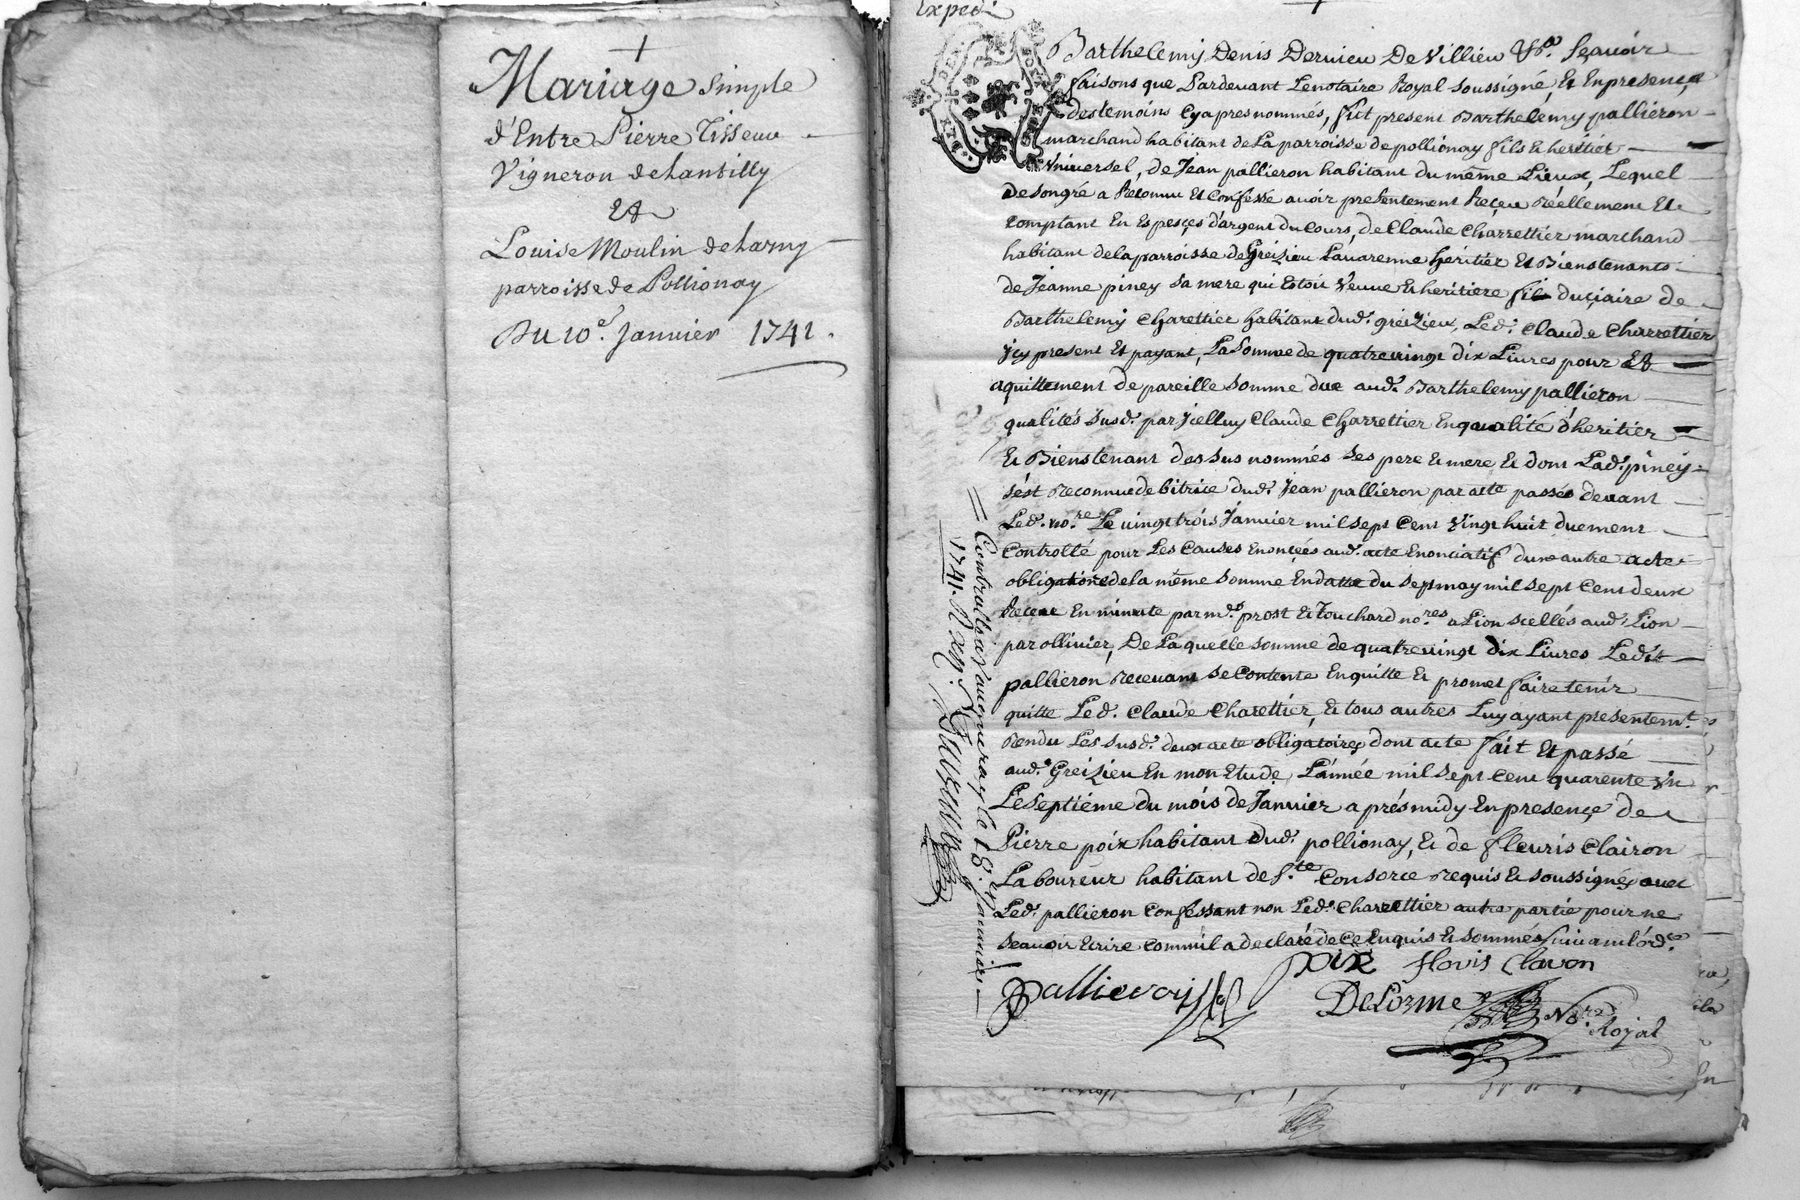 Mariage Simple
d'Entre Pierre Tisseur
Vigneron de Lantilly
Et
Louise Moulin de Larny
parroisse de Pollionay
Du 10e. Janvier 1741.
Expedi
Barthelemy Denis Dervieu De Villieu &a. Sçauoir
faisons que Pardeuant Lenotaire Royal soussigné, Et En presence
des temoins Cy apres nommés, fut present Barthelemy pallieron
marchand habitant de La parroisse de pollionay fils & heritier
Vniuersel, de Jean pallieron habitant du même Lieux, Lequel
de son gré a Reconnu Et Confessé auoir presentement Reçeu Réellement Et
comptant En Espeçes d'argent du Cours, de Claude Charrettier marchand
habitant de la parroisse de Greizieu Lauarenne héritier Et Bienstenants
de Jeanne piney Sa mere qui Estoit Veuue & heritiere fiduçiaire de
Barthelemy Charettier habitant dud. gréizieu, Led. Claude Charrettier
jcy present Et payant, La Somme de quatreuingt dix Liures pour Et
aquittement de pareille somme due aud. Barthelemy pallieron
qualités susd. par jcelluy Claude Charrettier En qualité d'heritier
Et Bienstenant des sus nommés Ses pere & mere & dont Lad. piney
s'est Reconnue debitrice dud. Jean pallieron par acte passé deuant
Led. no.re Le vingt trois Januier mil sept Cent Vingt huit duement
Controllé pour Les Causes Enoncées aud. acte Enonciatif dune autre acte
obligatoire de la même somme En datte du sept may mil sept Cent deux
Receue En minute par m.s prost & Touchard no.res a Lion scellés aud. Lion
par ollinier, De Laquelle somme de quatreuingt dix Liures Ledit
pallieron Receuant se Contente En quitte & promet faire tenir
quitte Led. Claude Charettier, & tous autres Luy ayant presentem.t
Rendu Les susd. deux acte obligatoires dont acte fait Et passé
aud. Greizieu En mon Etude, L'année mil sept Cent quarente Vn
Le septiéme du mois de Januier a prés midy En presençe de
Pierre poix habitant dud. pollionay, & de fleuris Clairon
Laboureur habitant de S.te Consorce Requis & soussignés auec
Led. pallieron Confessant non Led. Charrettier autre partie pour ne
sçauoir Ecrire Comm'il a declaré de Ce Enquis & sommés suiuant l'ord.e
poix floris Clairon
Pallieron
DeLorme No.re Royal
Controllé a Vaugneray le 18e. Januier
1741. R